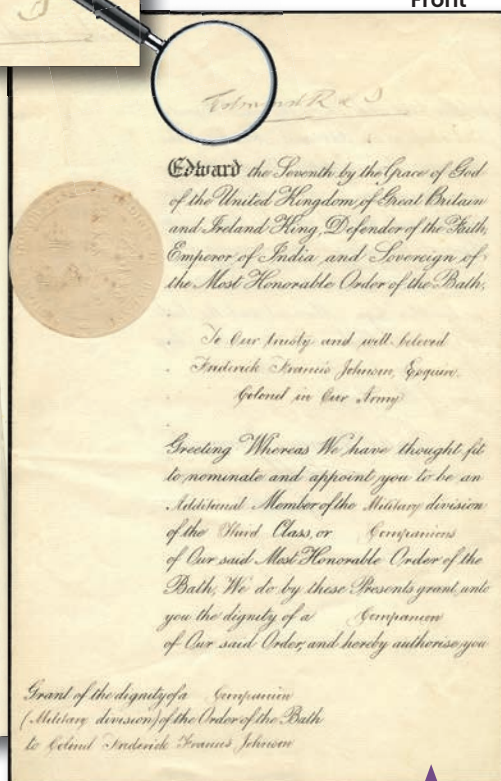 Front
Edward the Seventh by the Grace of God
of the United Kingdom of Great Britain
and Ireland King, Defender of the Faith,
Emperor of India and Sovereign of
the Most Honorable Order of the Bath,
To Our trusty and well beloved
Frederick Francis Johnson, Esquire.
Colonel in Our Army
Greeting Whereas We have thought fit
to nominate and appoint you to be an
Additional Member of the Military division
of the Third Class, or Companions
of Our said Most Honorable Order of the
Bath, We do by these Presents grant unto
you the dignity of a Companion
of Our said Order, and hereby authorise you
Grant of the dignity of a Companion
(Military division) of the Order of the Bath
to Colonel Frederick Francis Johnson